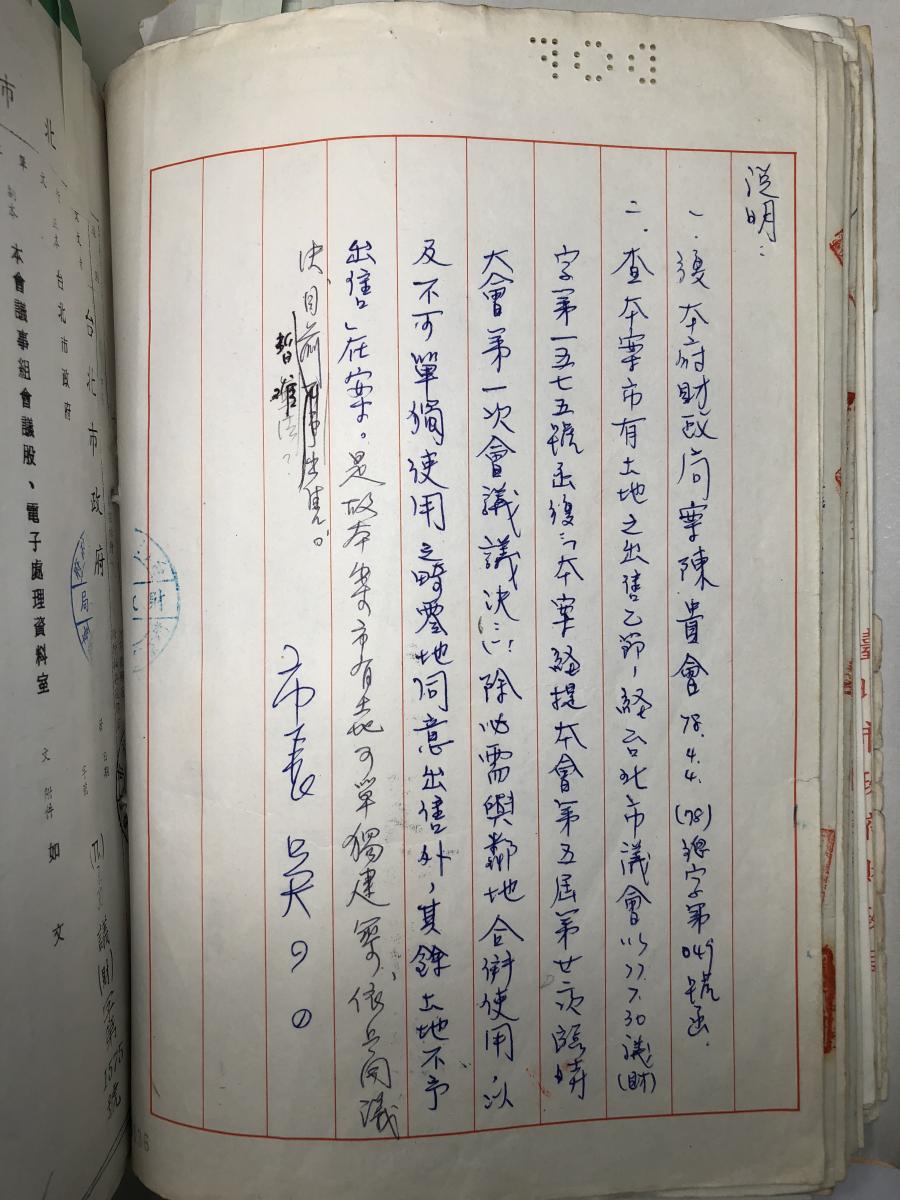 說明：
一、復本府財政局案陳貴會78.4.4.(78)總字第049號函.
二、查本案市有土地之出售乙節，經台北市議會以77.7.30議(財)
字第一五七五號函復：「本案經提本會第五屆第廿次臨時
大會第一次會議議決：『除必需與鄰地合併使用，以
及不可單獨使用之畸零地同意出售外，其餘土地不予
出售」在案。是故本案市有土地可單獨建築，依上開議
決，目前
暫難
出售。
市長吳○○
北市
台北市政府
台北市政府
本會議事組會議股、電子處理資料室
文
附件
如文
議(財)字第1575號
局